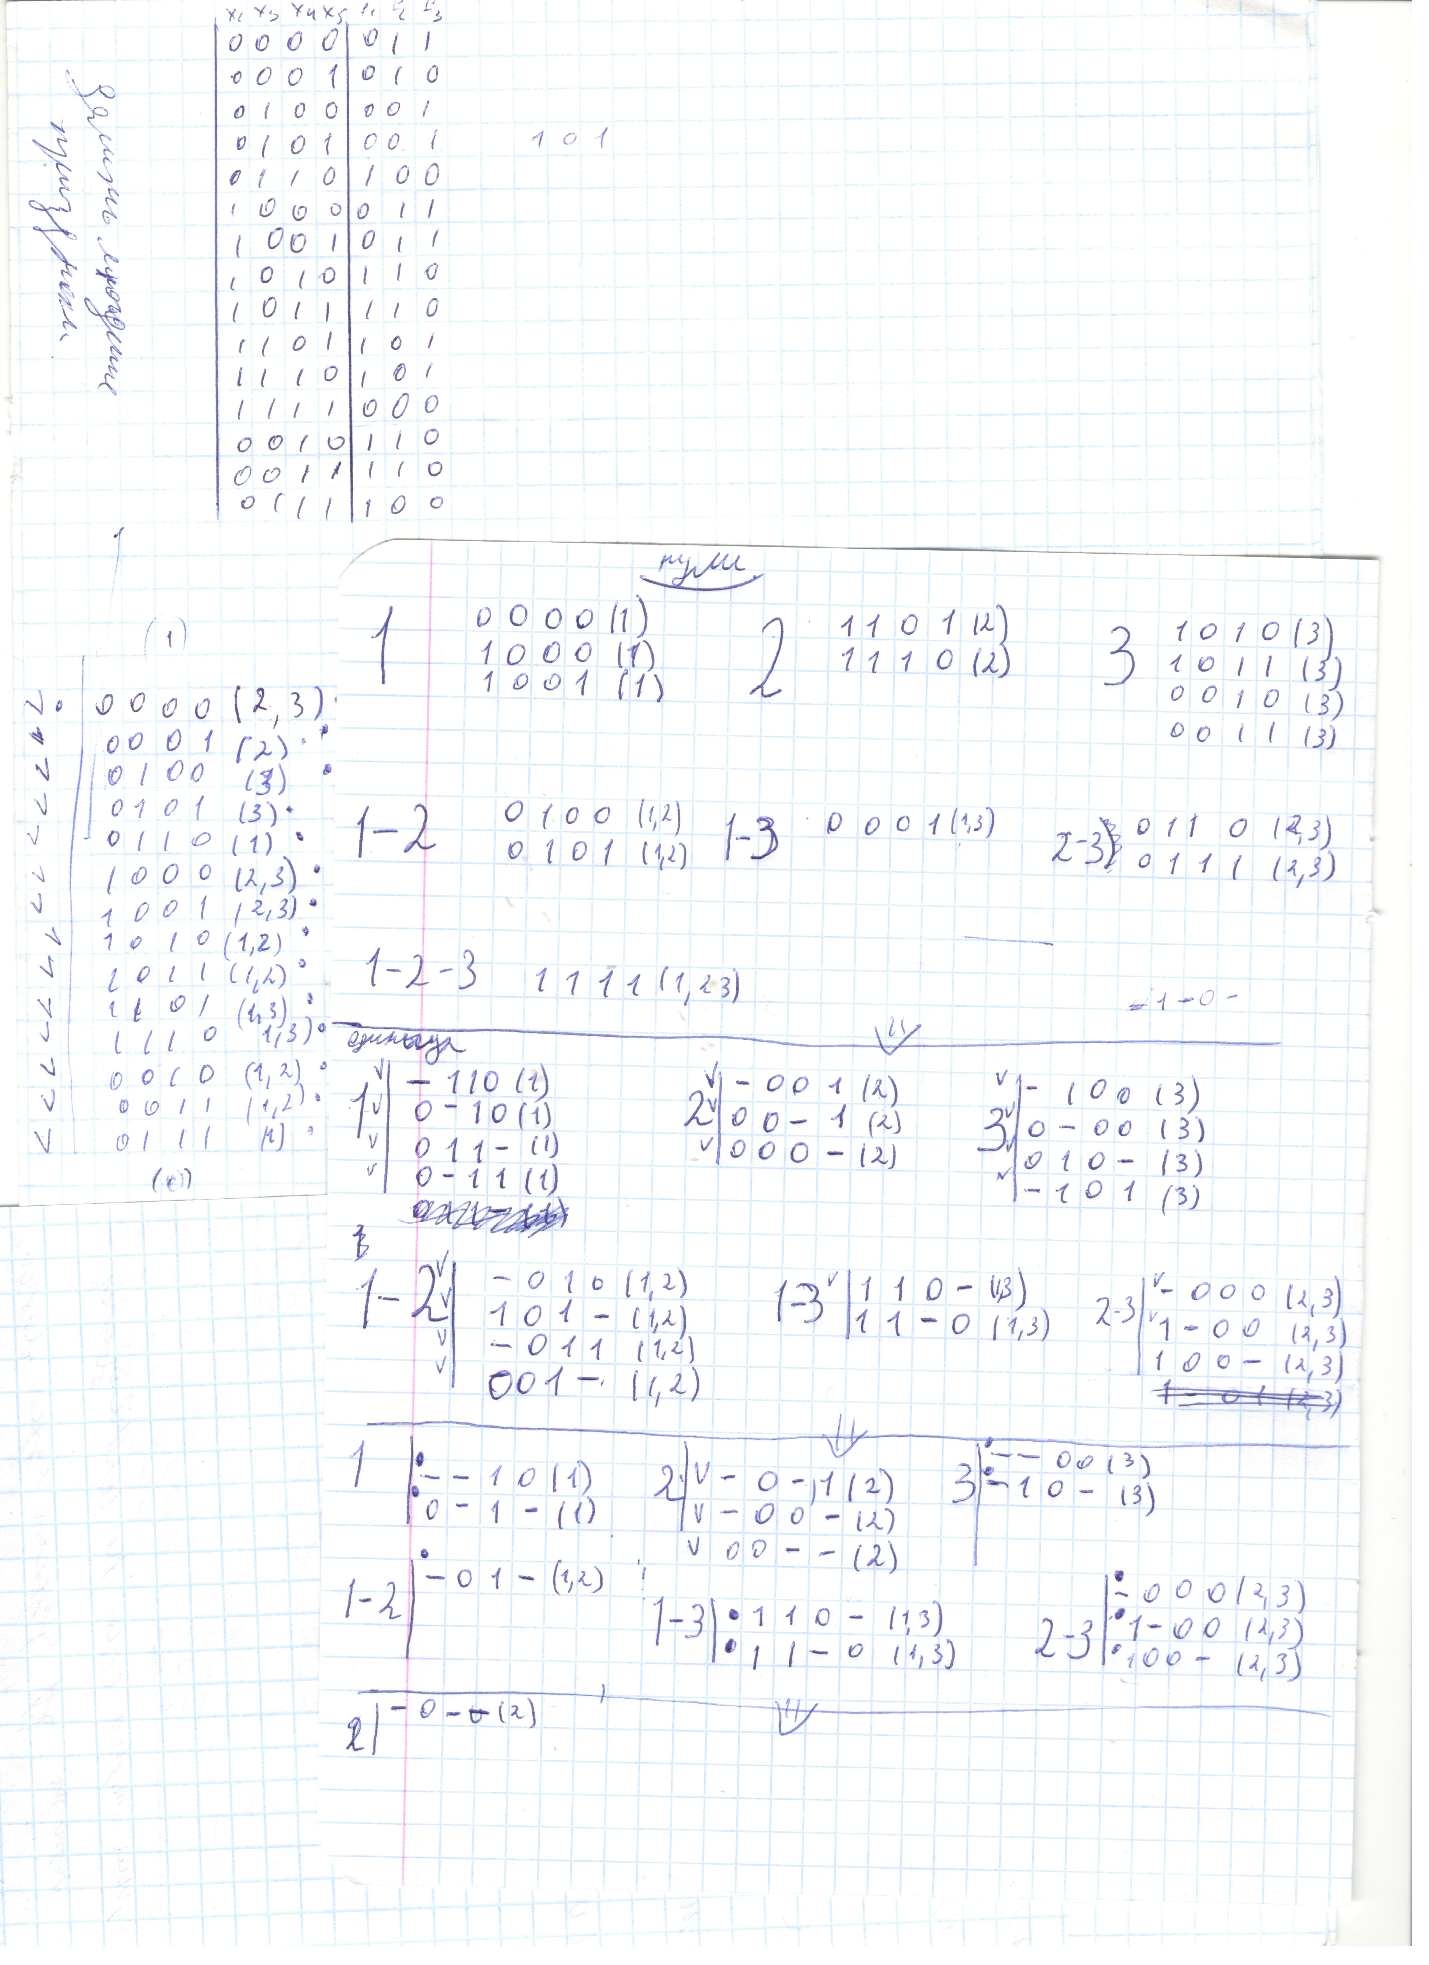 x₁ x₃ x₄ x₅ f₁ f₂ f₃
0 0 0 0 0 1 1
0 0 0 1 0 1 0
0 1 0 0 0 0 1
0 1 0 1 0 0 1
1 0 1
0 1 1 0 1 0 0
1 0 0 0 0 1 1
1 0 0 1 0 1 1
1 0 1 0 1 1 0
1 0 1 1 1 1 0
1 1 0 1 1 0 1
1 1 1 0 1 0 1
1 1 1 1 0 0 0
0 0 1 0 1 1 0
0 0 1 1 1 1 0
0 1 1 1 1 0 0
(1)
0 0 0 0 (2,3)
0 0 0 1 (2)
0 1 0 0 (3)
0 1 0 1 (3)
0 1 1 0 (1)
1 0 0 0 (2,3)
1 0 0 1 (2,3)
1 0 1 0 (1,2)
1 0 1 1 (1,2)
1 1 0 1 (1,3)
1 1 1 0 1,3)
0 0 1 0 (1,2)
0 0 1 1 (1,2)
0 1 1 1 (1)
нули
1
0 0 0 0 (1)
1 0 0 0 (1)
1 0 0 1 (1)
2
1 1 0 1 (2)
1 1 1 0 (2)
3
1 0 1 0 (3)
1 0 1 1 (3)
0 0 1 0 (3)
0 0 1 1 (3)
1-2
0 1 0 0 (1,2)
0 1 0 1 (1,2)
1-3
0 0 0 1 (1,3)
2-3
0 1 1 0 (2,3)
0 1 1 1 (2,3)
1-2-3
1 1 1 1 (1,2 3)
- 1 - 0 -
единица
1
- 1 1 0 (1)
0 - 1 0 (1)
0 1 1 - (1)
0 - 1 1 (1)
2
- 0 0 1 (2)
0 0 - 1 (2)
0 0 0 - (2)
3
- 1 0 0 (3)
0 - 0 0 (3)
0 1 0 - (3)
- 1 0 1 (3)
1-2
- 0 1 0 (1,2)
1 0 1 - (1,2)
- 0 1 1 (1,2)
0 0 1 - (1,2)
1-3
1 1 0 - (1,3)
1 1 - 0 (1,3)
2-3
- 0 0 0 (2,3)
1 - 0 0 (2,3)
1 0 0 - (2,3)
1 - 0 1 (2,3)
1
- - 1 0 (1)
0 - 1 - (1)
2
- 0 - 1 (2)
- 0 0 - (2)
0 0 - - (2)
3
- - 0 0 (3)
- 1 0 - (3)
1-2
- 0 1 - (1,2)
1-3
1 1 0 - (1,3)
1 1 - 0 (1,3)
2-3
- 0 0 0 (2,3)
1 - 0 0 (2,3)
1 0 0 - (2,3)
2
- 0 - - (2)